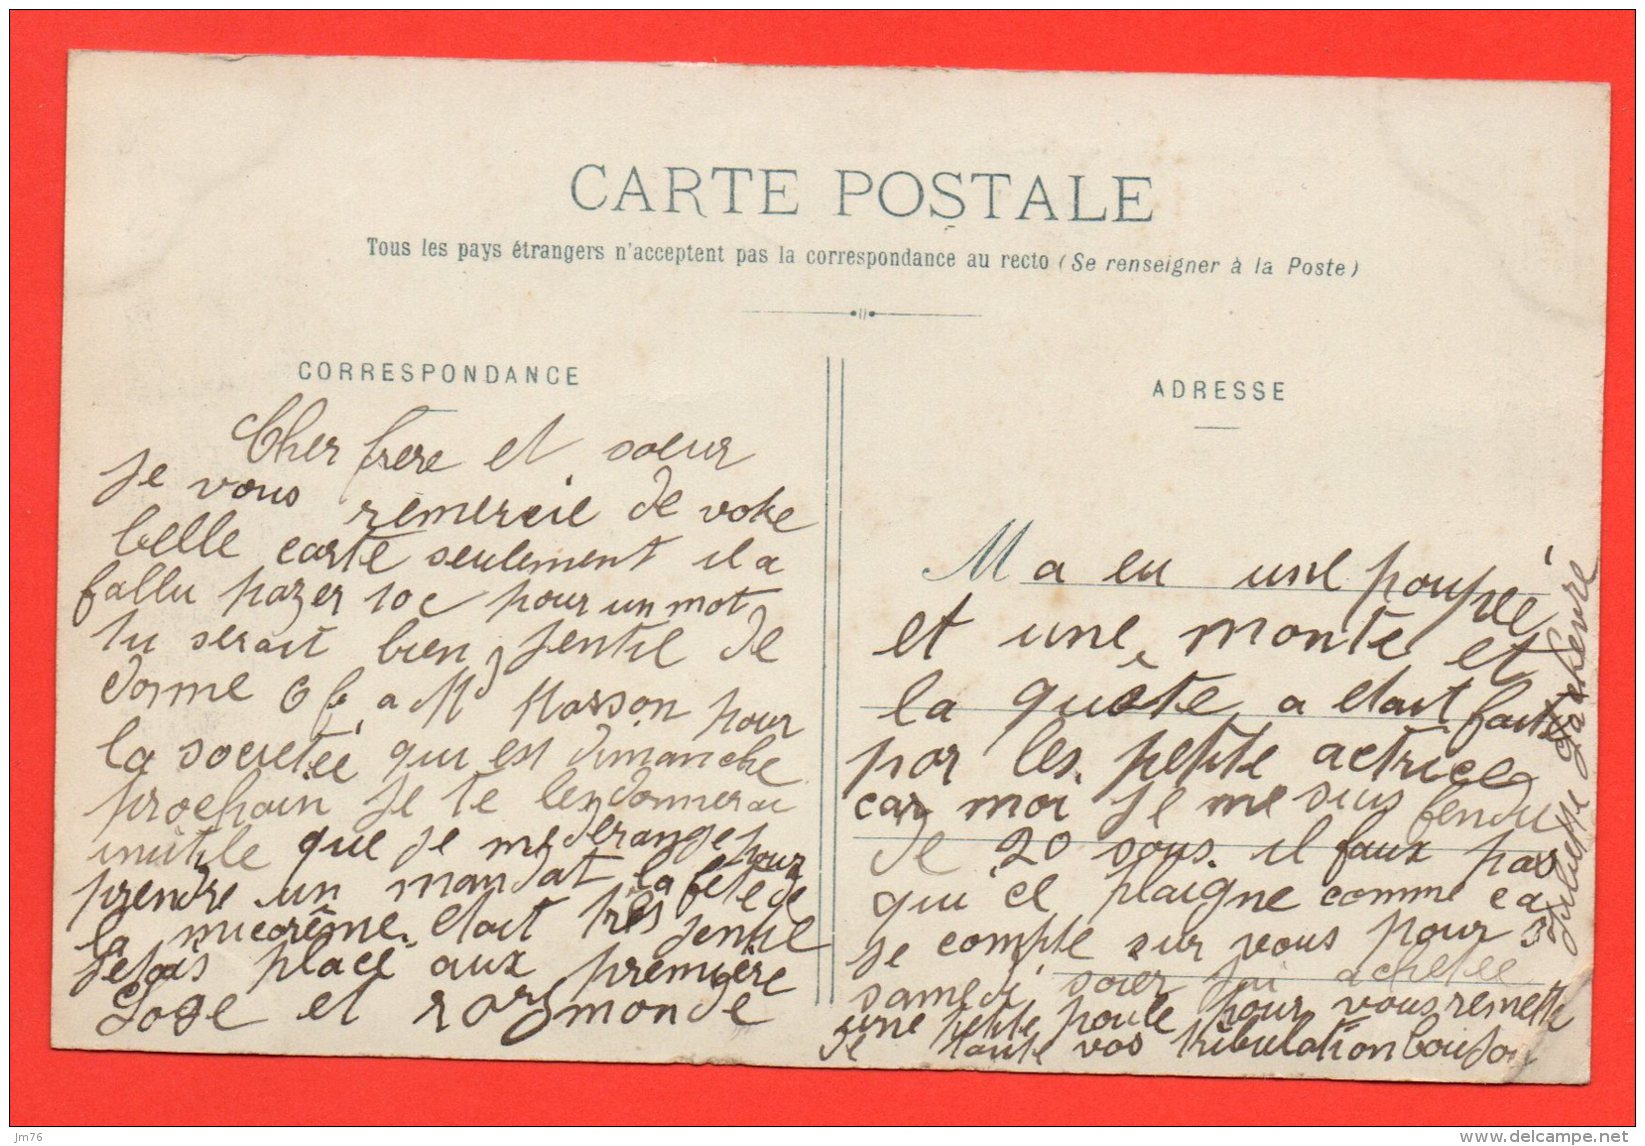 CARTE POSTALE
Tous les pays étrangers n'acceptent pas la correspondance au recto (Se renseigner à la Poste)
CORRESPONDANCE
Cher frere et soeur
Je vous remercie de votre
belle carte seulement il a
fallu payer 10c pour un mot
tu serait bien gentil de
donne 6 f a M Masson pour
la societée qui est dimanche
prochain je te lendonnerai
inutile que je me derange pour
prendre un mandat la fete de
la micarême etait tres gentil
jetais place aux première
Loge et monde
ADRESSE
Ma eu une poupée
et une monte et
la quête a etait faite
par les petite actrice
car moi je me suis fendu
de 20 sous. il faux pas
qui ce plaigne comme ca
je compte sur vous pour
samedi soir jai achetée
une petite poule pour vous remette
de toute vos tribulation
jm76